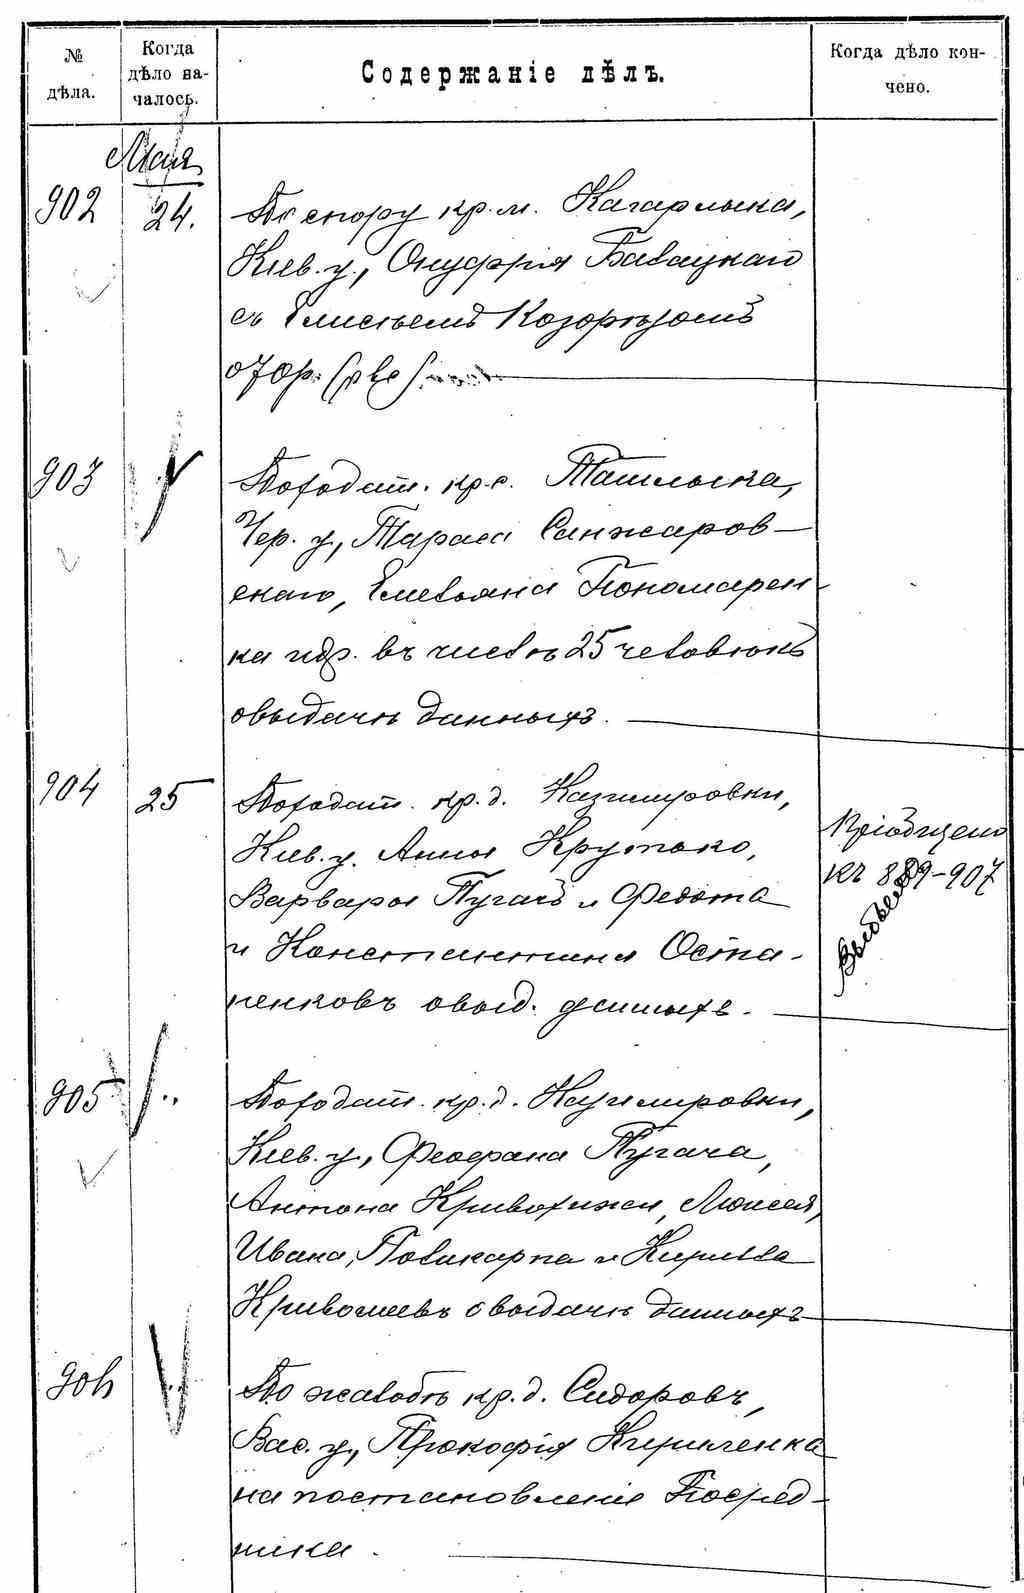 № дѣла.
Когда дѣло на-
чалось.
Содержаніе дѣлъ.
Когда дѣло кон-
чено.
Мая
902
24.
По спору кр. м. Кагарлыка,
Кіев. у., Онуфрія Бавацкаго
съ Елисѣемъ
903
По ходат. кр. с. Ташлыка,
Чер. у., Тараса Санжаров-
скаго, Емельяна Пономарен-
ка и др. въ числѣ 25 человѣкъ
о выдачѣ данныхъ.
904
25
По ходат. кр. д. Казимировки,
Кіев. у. Анны Крутько,
Варвары Пугачъ и Федота
и Константина Оста-
пенковъ о выд. данныхъ.
Пріобщено
къ 889-907
905
По ходат. кр. д. Казимировки,
Кіев. у., Феофана Пугача,
Антона Кривохижи, Моисея,
Ивана, Поликарпа и Кирилла
о выдачѣ данныхъ
906
По жалобѣ кр. д. Сидоровъ,
Вас. у., Прокофія Кириченка
на постановленіе Посред-
ника.